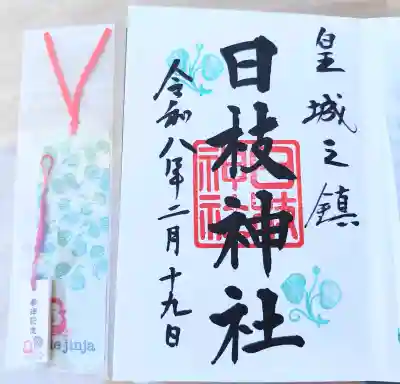 皇城之鎮
日枝神社
日枝神社
令和八年二月十九日
参拝記念
jinja